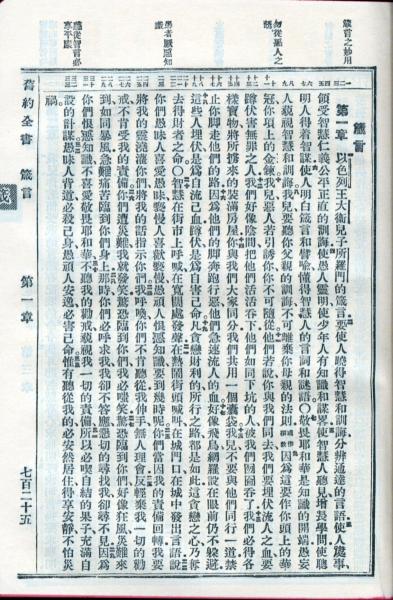 箴言之妙用
勿從惡人之誘
愚者厭惡知識
聽從智言必享平康
箴言
第一章 以色列王大衛兒子所羅門的箴言要使人曉得智慧和訓誨分辨通達的言語使人處事
領受智慧仁義公平正直的訓誨使愚人靈明使少年人有知識和謀畧使智慧人聽見增長學問使聰
明人得着智謀使人明白箴言和譬喻懂得智慧人的言詞和謎語○敬畏耶和華是知識的開端愚妄
人藐視智慧和訓誨我兒要聽你父親的訓誨不可離棄你母親的法則因爲這要作你頭上的華
冠你項上的金鍊我兒惡人若引誘你你不可隨從他們若說你與我們同去我們要埋伏流人之血要
蹲伏害無罪之人我們好像陰間把他們活活吞下他們如同下坑的人被我們囫圇吞了我們必得各
樣寶物將所擄來的裝滿房屋你與我們大家同分我們共用一個囊袋我兒不要與他們同行一道禁
止你脚走他們的路因爲他們的脚奔跑行惡他們急速流人的血好像飛鳥網羅設在眼前仍不躲避
這些人埋伏是爲自流己血蹲伏是爲自害己命凡貪戀財利的所行之路都是如此這貪戀之心乃奪
去得財者之命○智慧在街市上呼喊在寬闊處發聲在熱鬧街頭喊叫在城門口在城中發出言語說
你們愚昧人喜愛愚昧褻慢人喜歡褻慢愚頑人恨惡知識要到幾時呢你們當因我的責備回轉我要
將我的靈澆灌你們將我的話指示你們我呼喚你們不肯聽從我伸手無人理會反輕棄我一切的勸
戒不肯受我的責備你們遭災難我就發笑驚恐臨到你們我必嗤笑驚恐臨到你們好像狂風災難來
到如同暴風急難痛苦臨到你們身上那時你們必呼求我我卻不答應懇切的尋找我卻尋不見因爲
你們恨惡知識不喜愛敬畏耶和華不聽我的勸戒藐視我一切的責備所以必喫自結的果子充滿自
設的計謀愚昧人背道必殺己身愚頑人安逸必害己命惟有聽從我的必安然居住得享安靜不怕災
禍
舊約全書 箴言 第一章 七百二十五
箴